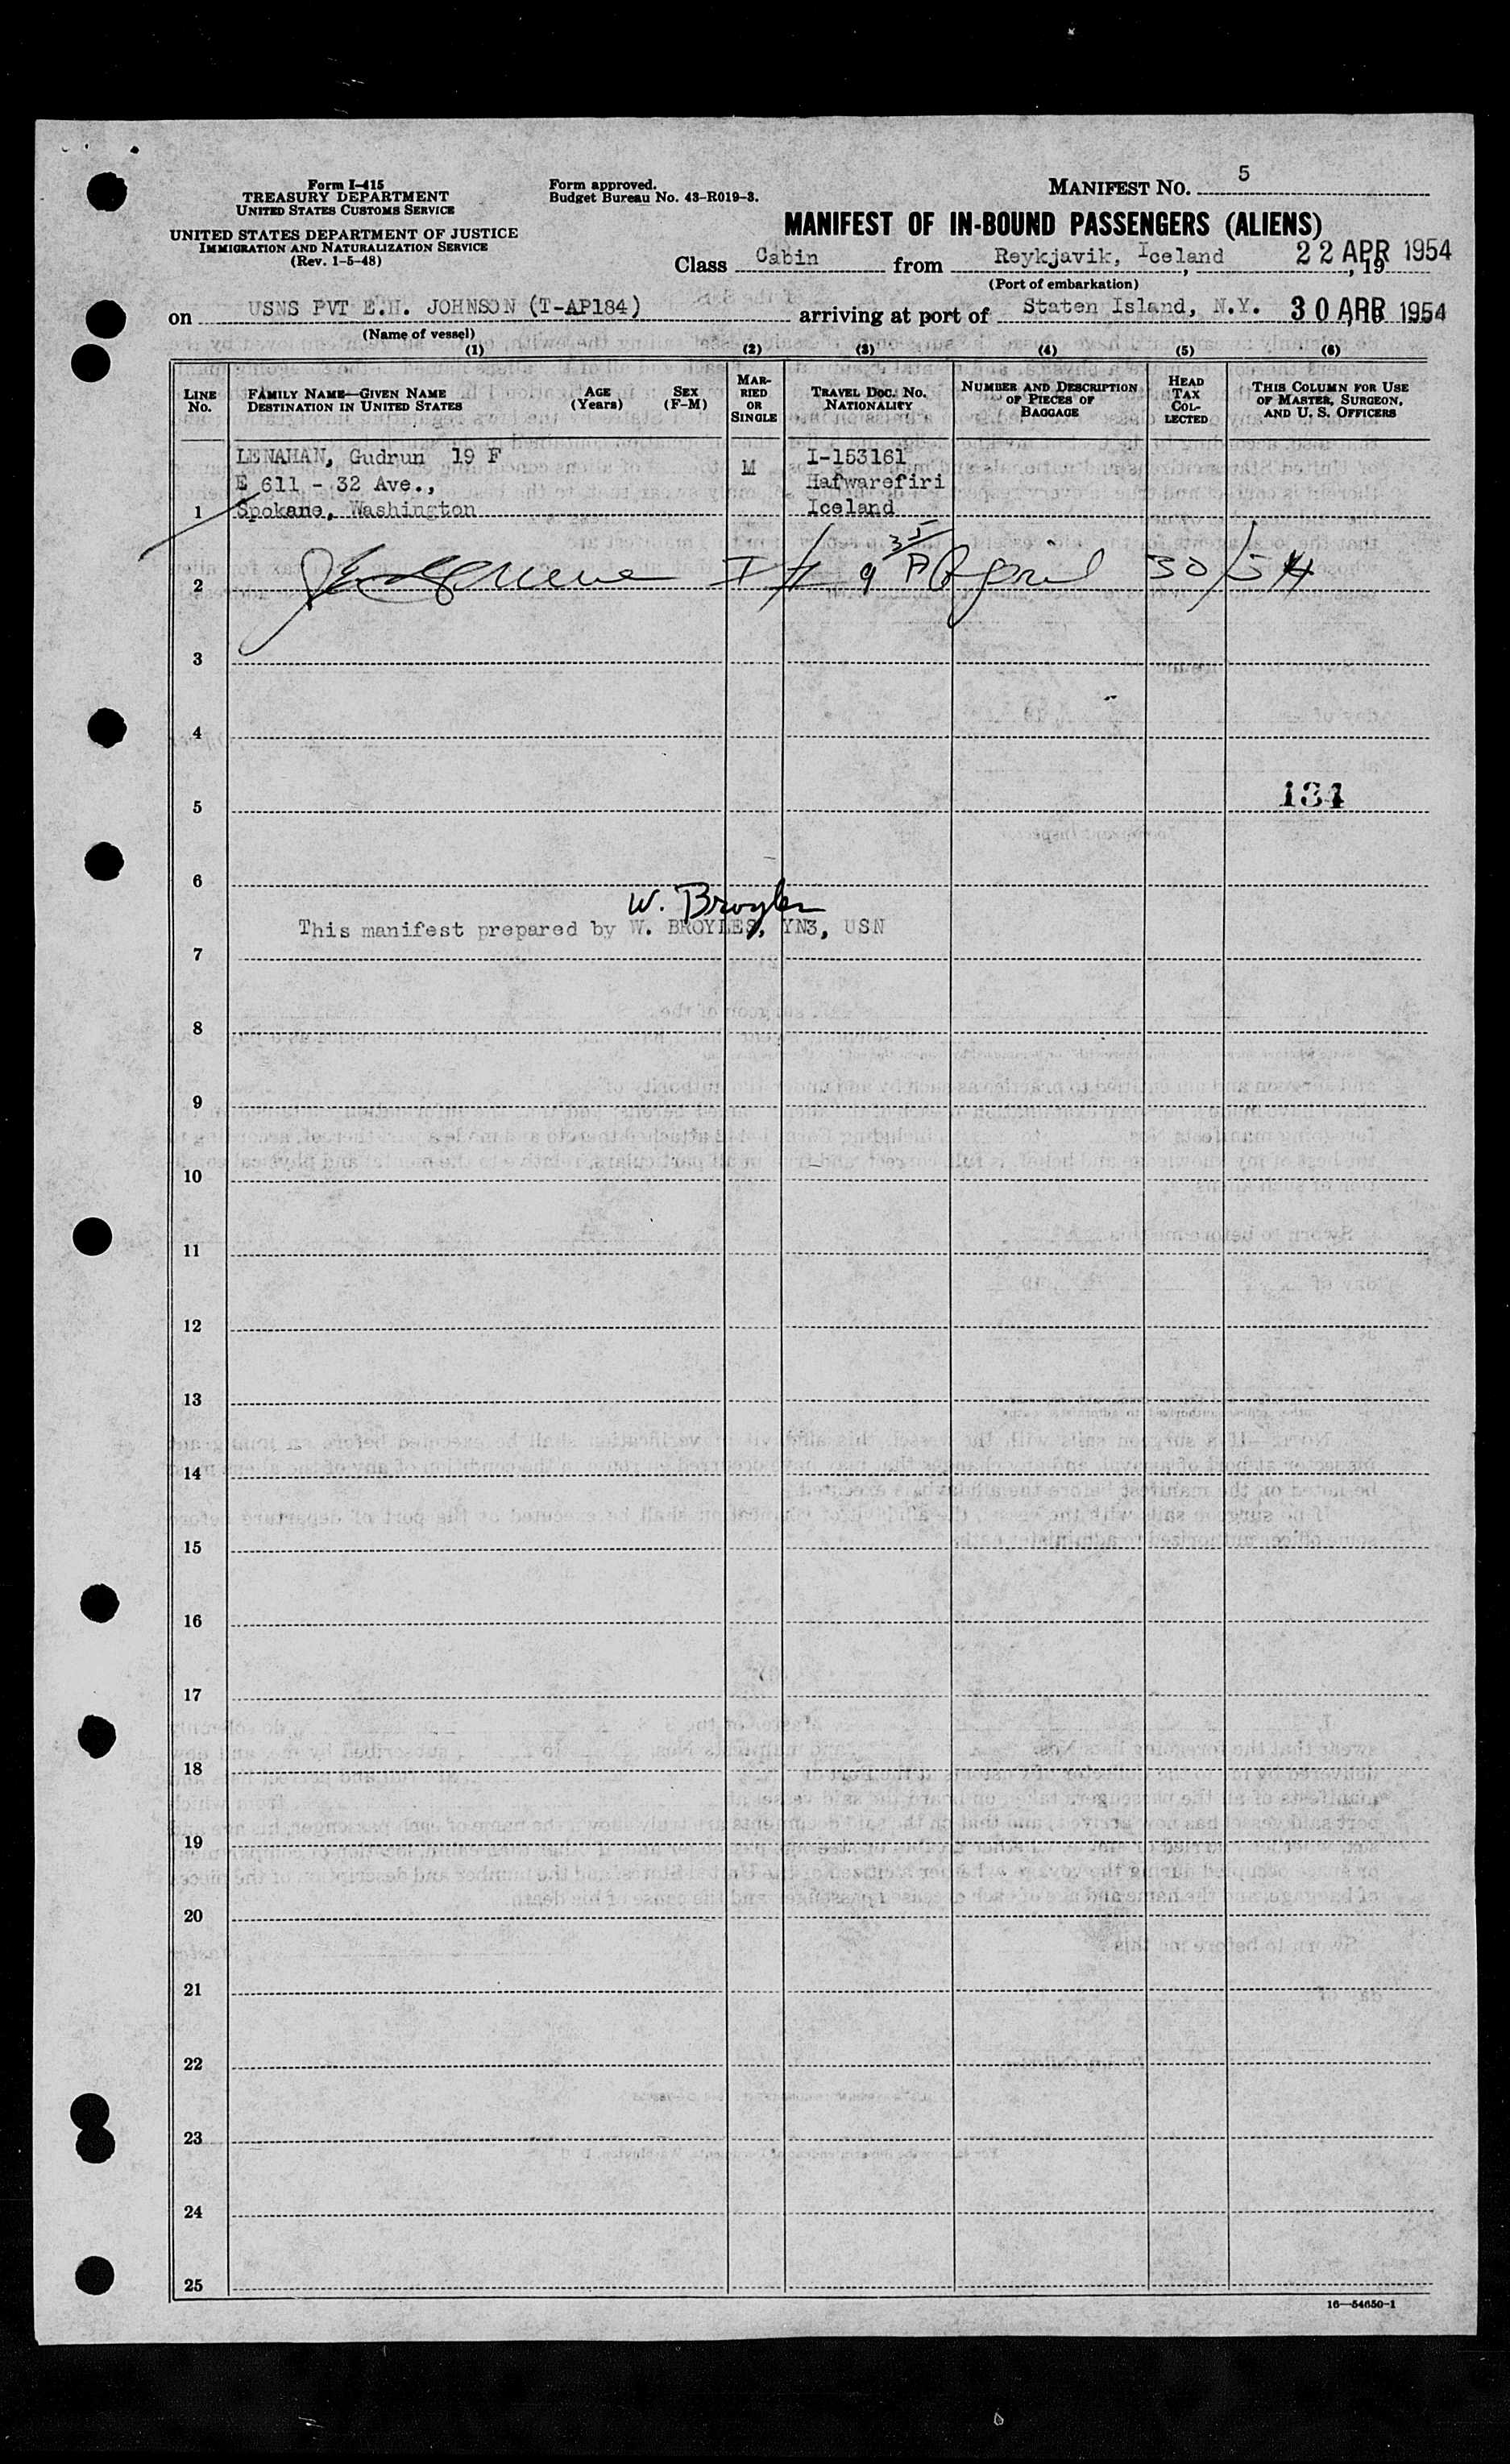 Form I-415
TREASURY DEPARTMENT
UNITED STATES CUSTOMS SERVICE
UNITED STATES DEPARTMENT OF JUSTICE
IMMIGRATION AND NATURALIZATION SERVICE
(Rev. 1-5-48)
Form approved.
Budget Bureau No. 43-R019-3.
MANIFEST NO. 5
MANIFEST OF IN-BOUND PASSENGERS (ALIENS)
Class Cabin from Reykjavik, Iceland, 22 APR 1954, 19
(Port of embarkation)
on USNS PVT E.H. JOHNSON (T-AP184) arriving at port of Staten Island, N.Y. 30 APR 1954
(Name of vessel)
(1) (2) (3) (4) (5) (6)
LINE No.
FAMILY NAME—GIVEN NAME
DESTINATION IN UNITED STATES
AGE (Years)
SEX (F-M)
MARRIED OR SINGLE
TRAVEL DOC. NO.
NATIONALITY
NUMBER AND DESCRIPTION OF PIECES OF BAGGAGE
HEAD TAX COLLECTED
THIS COLUMN FOR USE OF MASTER, SURGEON, AND U. S. OFFICERS
LENAHAN, Gudrun 19 F M I-153161
E 611 - 32 Ave., Hafwarefiri
1 Spokane, Washington Iceland
2 9 35 April 30/54
3
4
5 134
6
W. Broyles
This manifest prepared by W. BROYLES, YN3, USN
7
8
9
10
11
12
13
14
15
16
17
18
19
20
21
22
23
24
25
16—54650-1